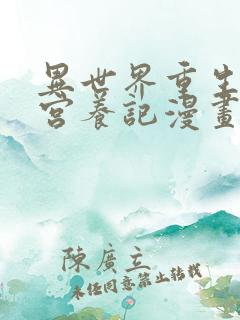 異世界重生
宮養記漫畫
陳廣立
未經同意禁止轉載